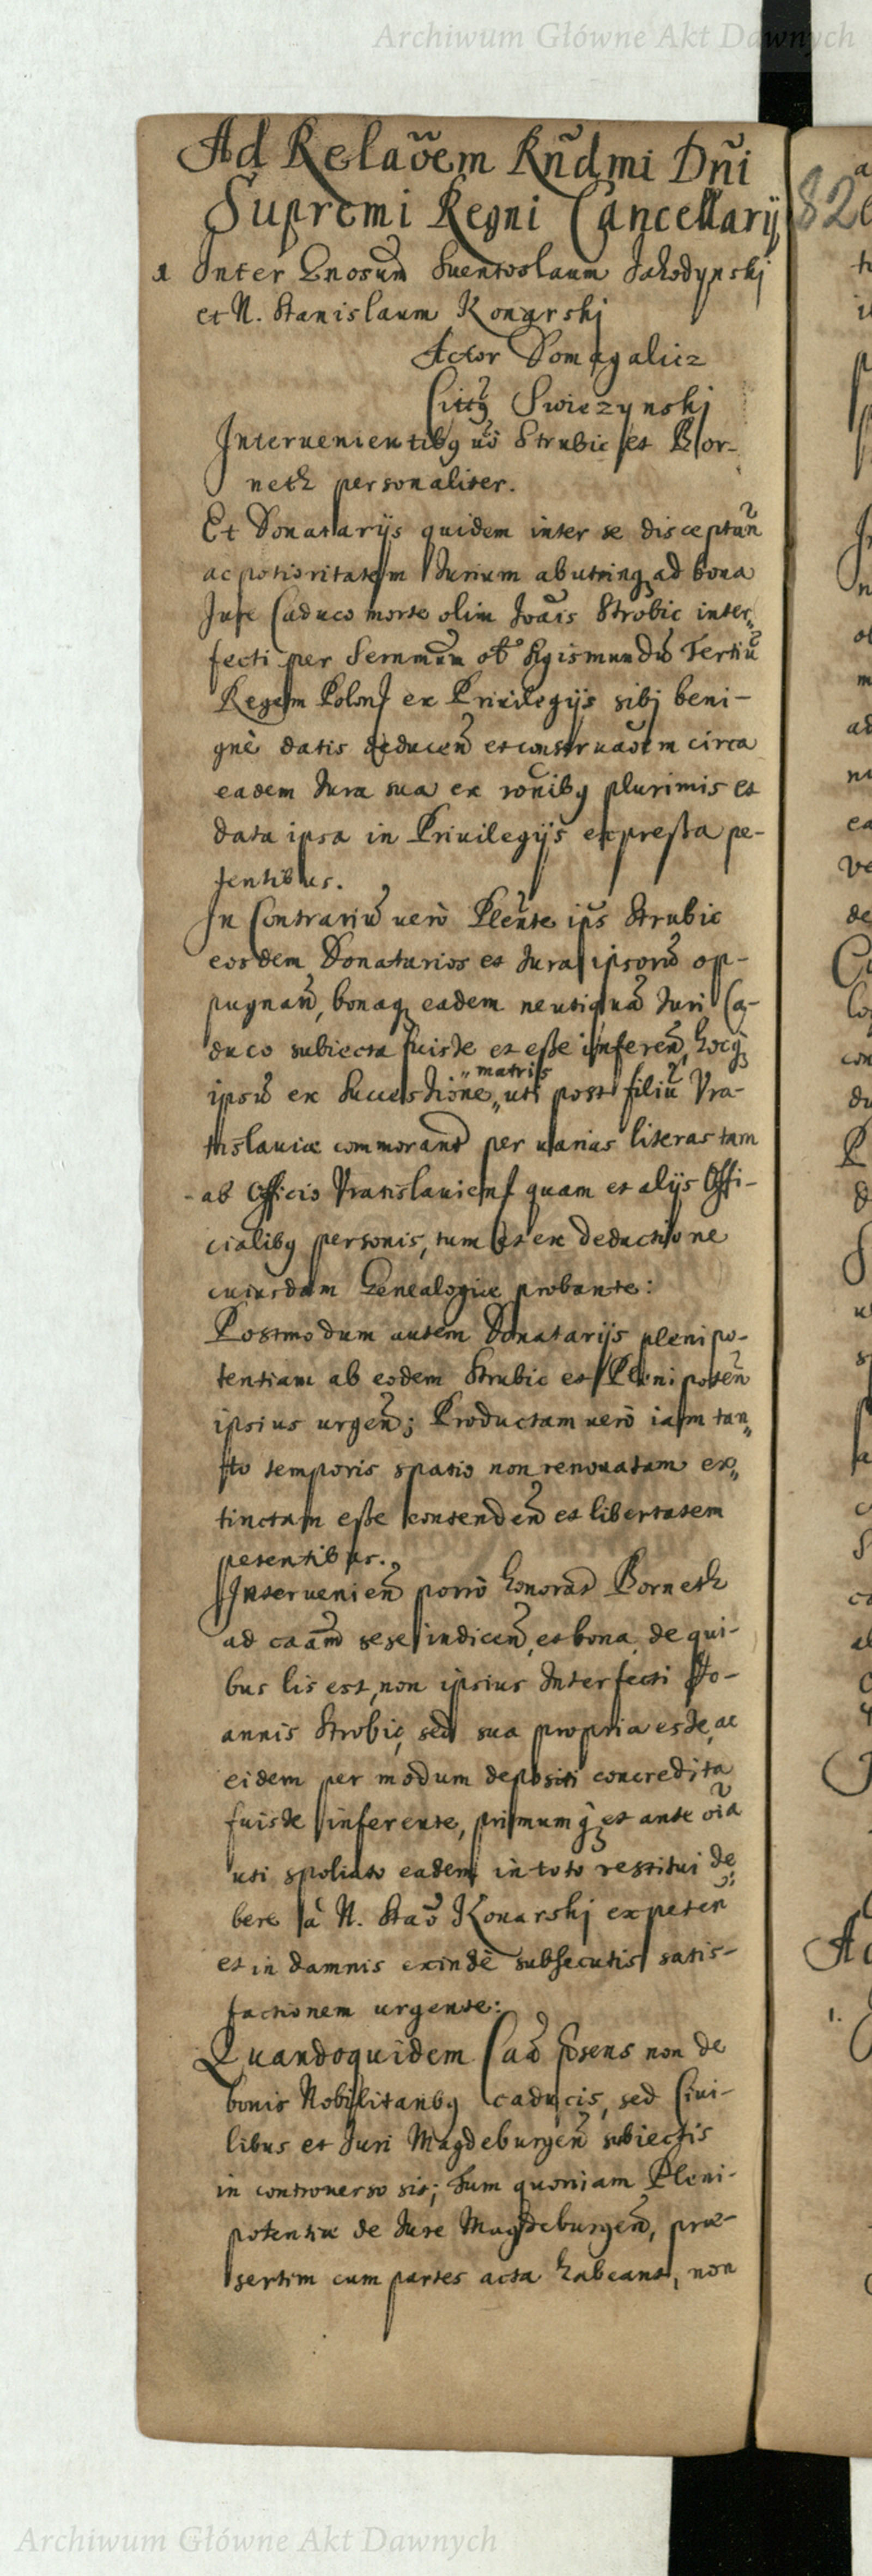 Archiwum Główne Akt Dawnych
Ad Relaōem Rñdmi Dñi
Supremi Regni Cancellarij
82
1 Inter Gnosum Suentoslaum Jakodynskj
et N. Stanislaum Konarskj
Actor Domagalicz
Cittꝯ Swiezynskj
Interuenientibꝯ uō Strubic et Bor-
neth personaliter.
Et Donatarijs quidem inter se disceptan̄
ac potioritatem Jurium abutrinqꝫ ad bona
Jure Caduco morte olim Joāis Strobic inter„
fecti per Sernmum ol° Sigismundū Tertiū
Regem Polon̄ ex Priuilegijs sibj beni-
gnè datis deducen̄ et conseruaōem circa
eadem Jura sua ex rōnibꝯ plurimis et
data ipsa in Priuilegijs expreßa pe-
tentibus.
In Contrariū uerò Plen̄te ip̄s Strubic
eosdem Donatarios et Jura ipsorū op-
pugnan̄, bonaqꝫ eadem neutiquā Juri Ca-
duco subiecta fuisse et eße inferen̄, hocqꝫ
ipsū ex Successione „matris„ uti post filiū Vra-
tislauiæ commorant̄ per uarias literas tam
- ab Officio Vratislauien̄ quam et alijs Offi-
cialibꝯ personis, tum et ex deductione
cuiusdam Genealogiæ probante:
Postmodum autem Donatarijs plenipo-
tentiam ab eodem Strubic et Plenipoten̄
ipsius urgen̄; Productam uerò iam tan„
to temporis spatio non renouatam ex„
tinctam eße contenden̄ et libertatem
petentibus.
Interuenien̄ porrò honorat̄ Borneth
ad caām sese indicen̄, et bona de qui-
bus lis est, non ipsius Interfecti Jo-
annis Strobic, sed sua propria esse, ac
eidem per modum depositi concredita
fuisse inferente, primumqꝫ et ante oīa
uti spoliato eadem in toto restitui de„
bere à N. Staō Konarskj expeten̄
et in damnis exindè subsecutis satis-
factionem urgente:
Quandoquidem Caā p̄sens non de
bonis Nobilitaribꝯ caducis, sed Ciui-
libus et Juri Magdeburgen̄ subiectis
in controuerso sit; Tum quoniam Pleni-
potentiæ de Jure Magdeburgen̄, præ-
sertim cum partes acta habeant, non
Archiwum Główne Akt Dawnych